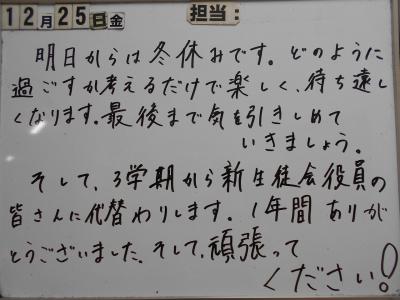 12月25日金 担当:
明日からは冬休みです。どのように
過ごすか考えるだけで楽しく、待ち遠し
くなります。最後まで気を引きしめて
いきましょう。
そして、3学期から新生徒会役員の
皆さんに代替わりします。1年間ありが
とうございました。そして、頑張って
ください!